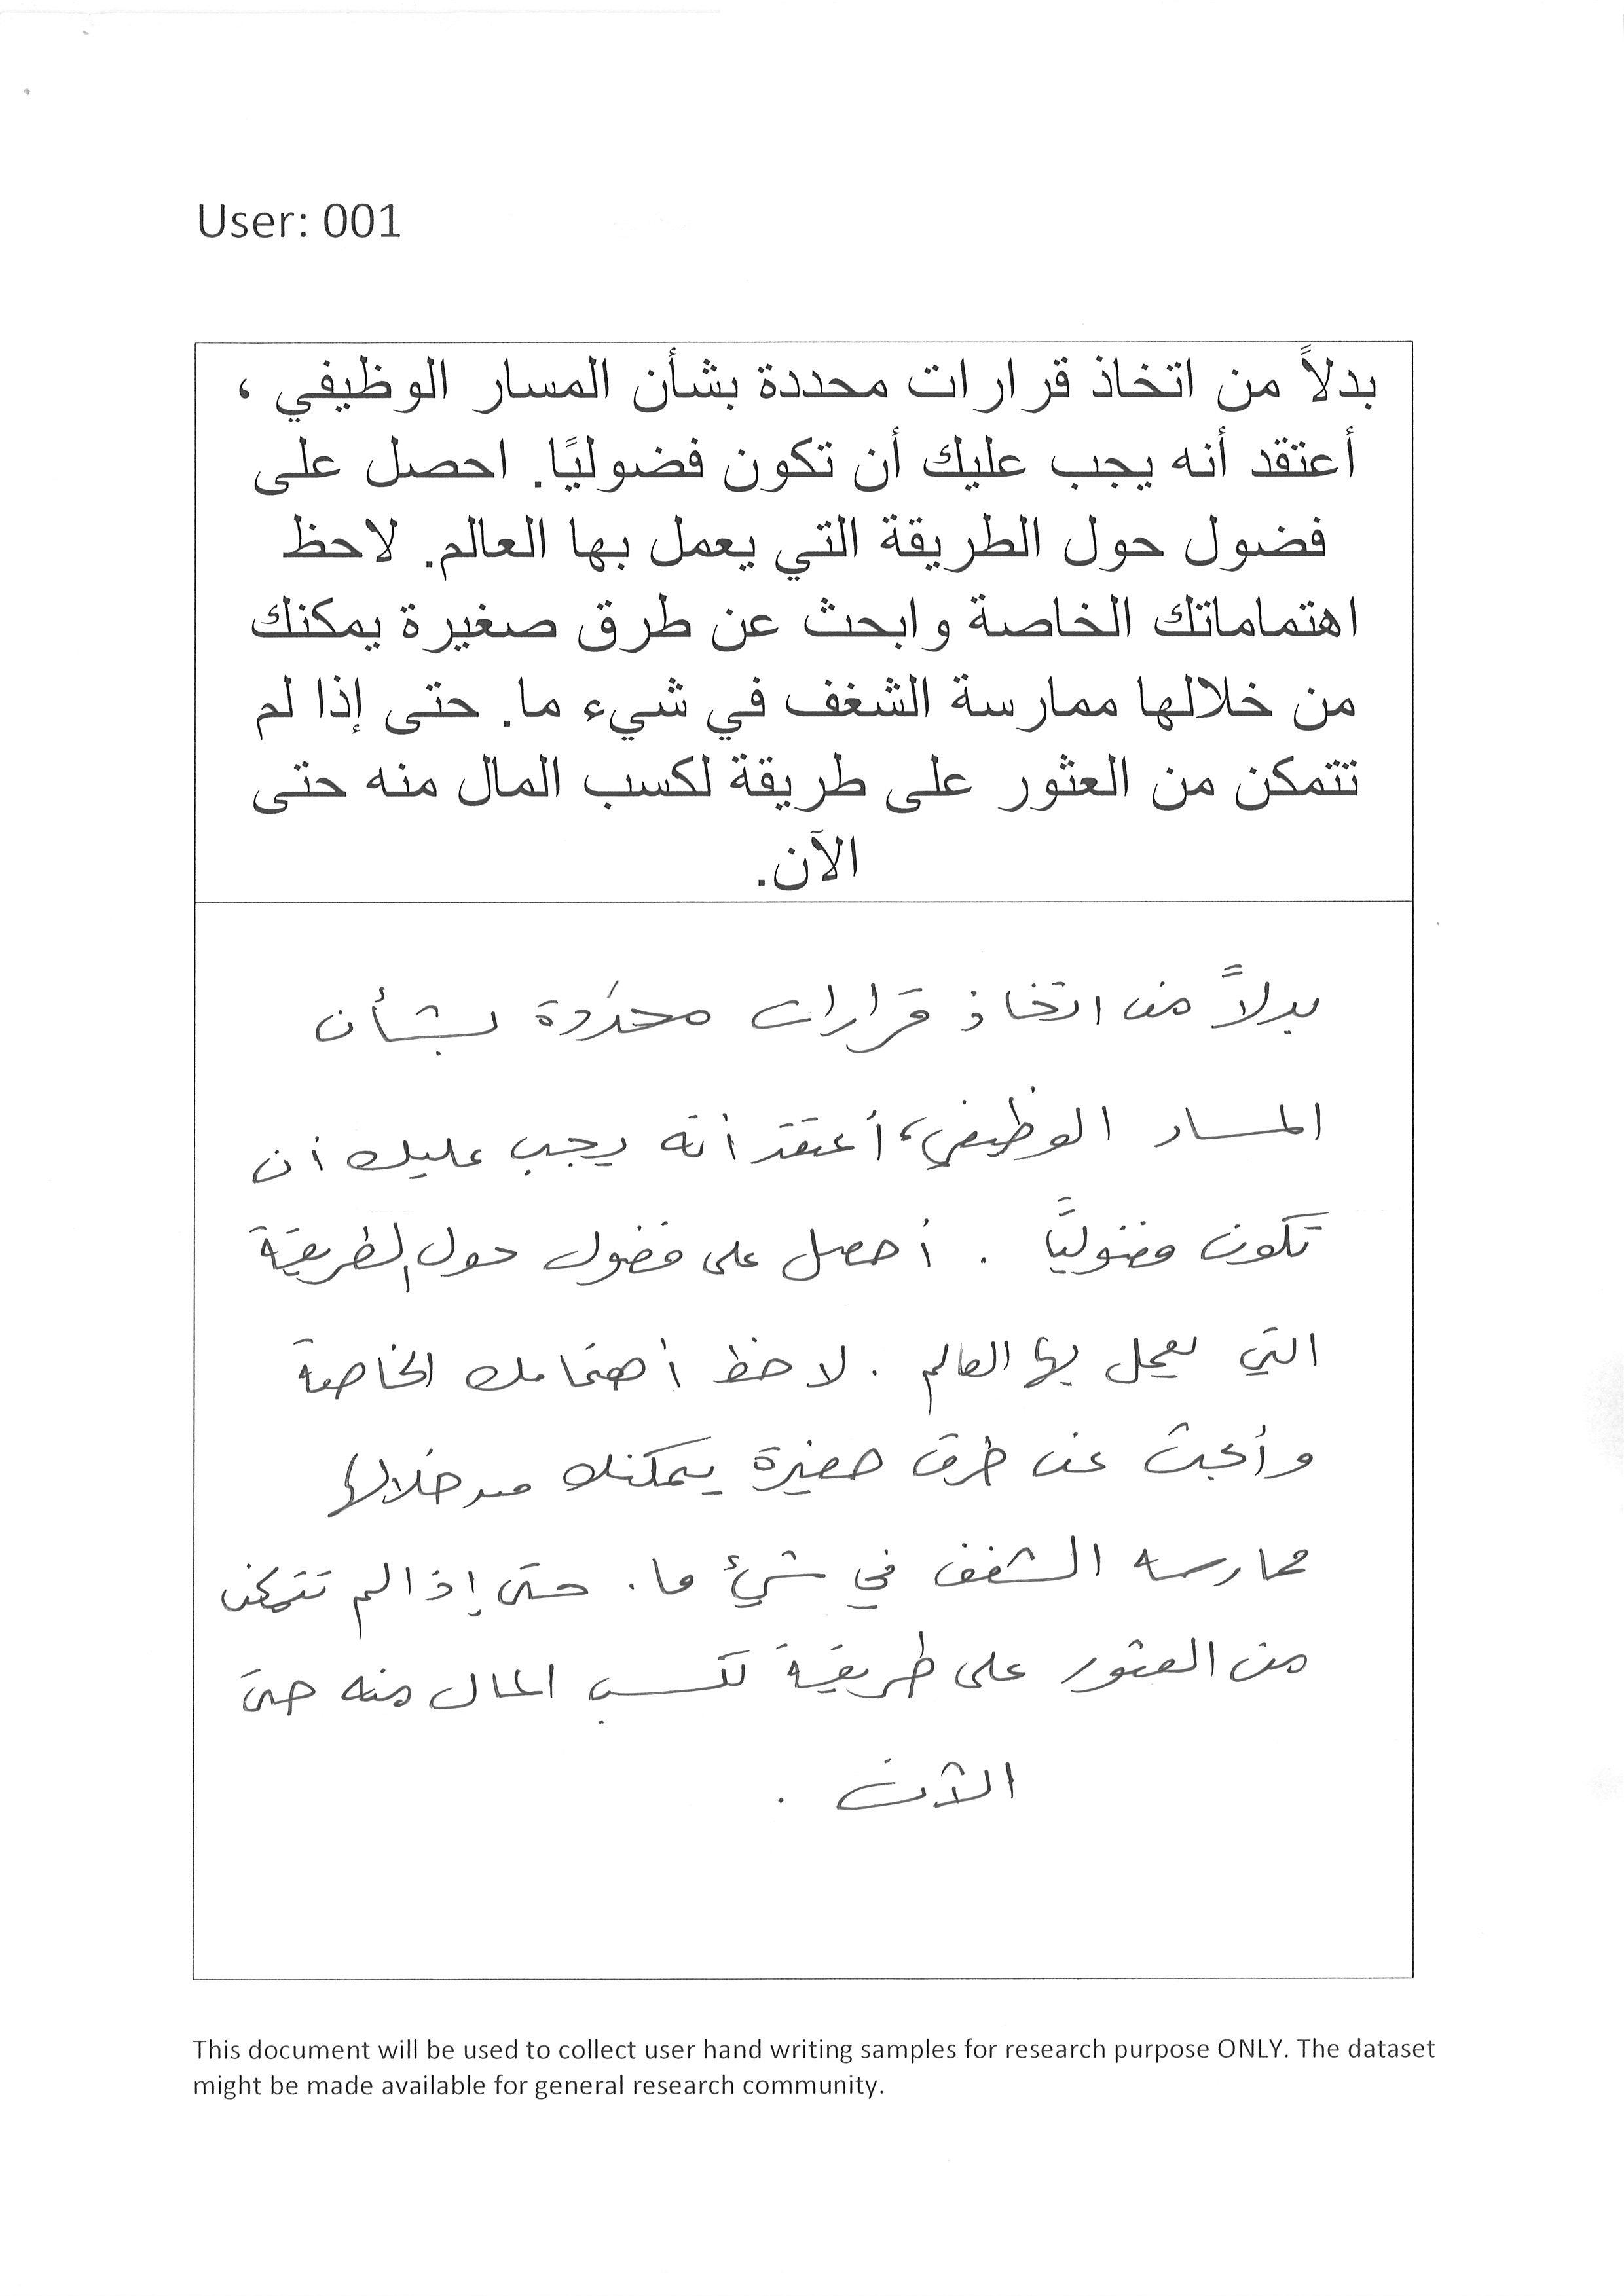 User: 001
بدلاً من اتخاذ قرارات محددة بشأن المسار الوظيفي ،
أعتقد أنه يجب عليك أن تكون فضوليًا. احصل على
فضول حول الطريقة التي يعمل بها العالم. لاحظ
اهتماماتك الخاصة وابحث عن طرق صغيرة يمكنك
من خلالها ممارسة الشغف في شيء ما. حتى إذا لم
تتمكن من العثور على طريقة لكسب المال منه حتى
الآن.
بدلاً من اتخاذ قرارات محددة بشأن
المسار الوظيفي، أعتقد أنه يجب عليك أن
تكون فضوليًا . أحصل على فضول حول الطريقة
التي يعمل بها العالم . لاحظ أهتمامك الخاصة
وأبحث عن طرق صغيرة يمكنك من خلالها
ممارسه الشغف في شئ ما . حتى إذا لم تتمكن
من العثور على طريقة لكسب المال منه حتى
الآن .
This document will be used to collect user hand writing samples for research purpose ONLY. The dataset
might be made available for general research community.